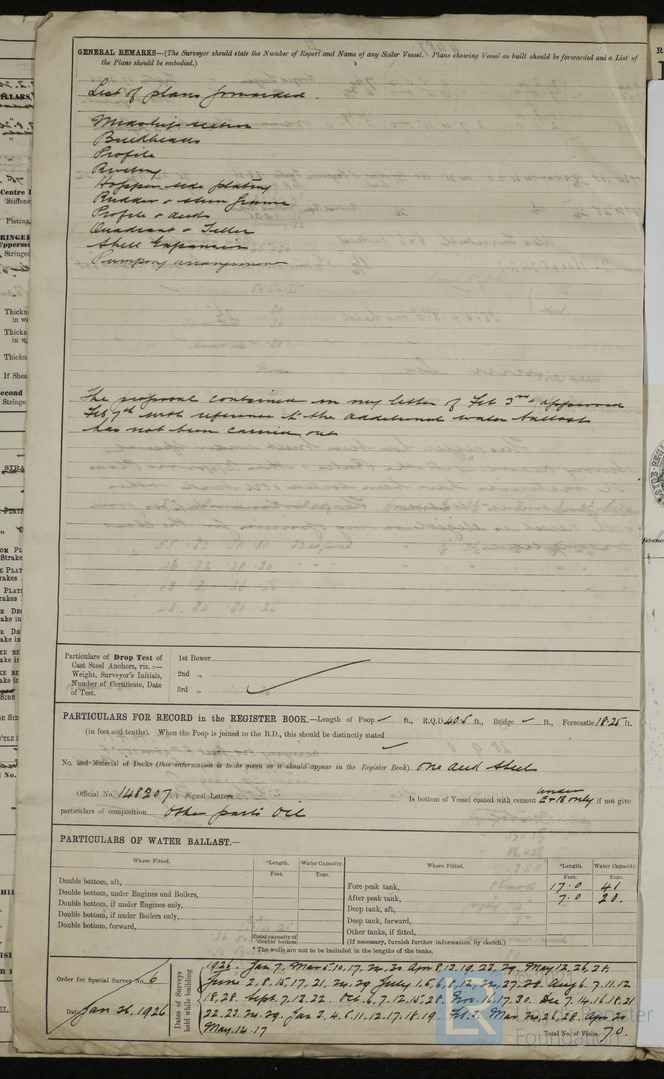 GENERAL REMARKS—(The Surveyor should state the Number of Report and Name of any Sister Vessel. Plans showing Vessel as built should be forwarded and a List of
the Plans should be embodied.)
List of plans forwarded.
Midship section
Bulkheads
Profile
Riveting
Hopper side plating
Rudder & stern frame
Profile & deck
Quadrant & Tiller
Shell Expansion
Pumping arrangement
The proposal contained in my letter of Feb 3rd & approved
Feb 7th with reference to the additional water ballast
has not been carried out
Particulars of Drop Test of
Cast Steel Anchors, viz. :—
Weight, Surveyor's Initials,
Number of Certificate, Date
of Test.
1st Bower
2nd „
3rd „
PARTICULARS FOR RECORD in the REGISTER BOOK.—Length of Poop ✓ ft., R.Q.D. 40.5 ft., Bridge ✓ ft., Forecastle 18.25 ft.
(in feet and tenths). When the Poop is joined to the B.D., this should be distinctly stated ✓
No. and Material of Decks (this information is to be given as it should appear in the Register Book) One deck steel
Official No. 148207 ; Signal Letters Is bottom of Vessel coated with cement under E & B only if not give
particulars of composition other parts oil
PARTICULARS OF WATER BALLAST.—
Where Fitted. *Length. Feet. Water Capacity. Tons.
Double bottom, aft,
Double bottom, under Engines and Boilers,
Double bottom, if under Engines only,
Double bottom, if under Boilers only,
Double bottom, forward,
Total capacity of double bottom
Where Fitted. *Length. Feet. Water Capacity. Tons.
Fore peak tank, 17.0 41
After peak tank, 7.0 20.
Deep tank, aft,
Deep tank, forward,
Other tanks, if fitted,
(If necessary, furnish further information by sketch.)
* The wells are not to be included in the lengths of the tanks.
Order for Special Survey No. 6
Date Jan 26. 1926
Dates of Surveys held while building
1926. Jan 7. Mar 5. 10, 17. 24. 30 Apr 8. 13. 19. 23. 29. May 12. 26. 28.
June 2. 8. 15. 17. 21. 24. 29 July 1. 5, 6, 8, 12, 22, 27. 30. Aug 6. 7. 11. 12
18, 28. Sept. 7. 13. 22. Oct. 6. 7. 12. 15. 28. Nov. 16. 17. 30. Dec 7. 14. 16. 18. 21
22. 23. 24. 29. Jan 3. 4. 5. 11. 12. 17. 18. 19. Feb. 2. Mar 24, 26, 28. Apr. 20
May. 14. 17
Total No. of Visits 70.